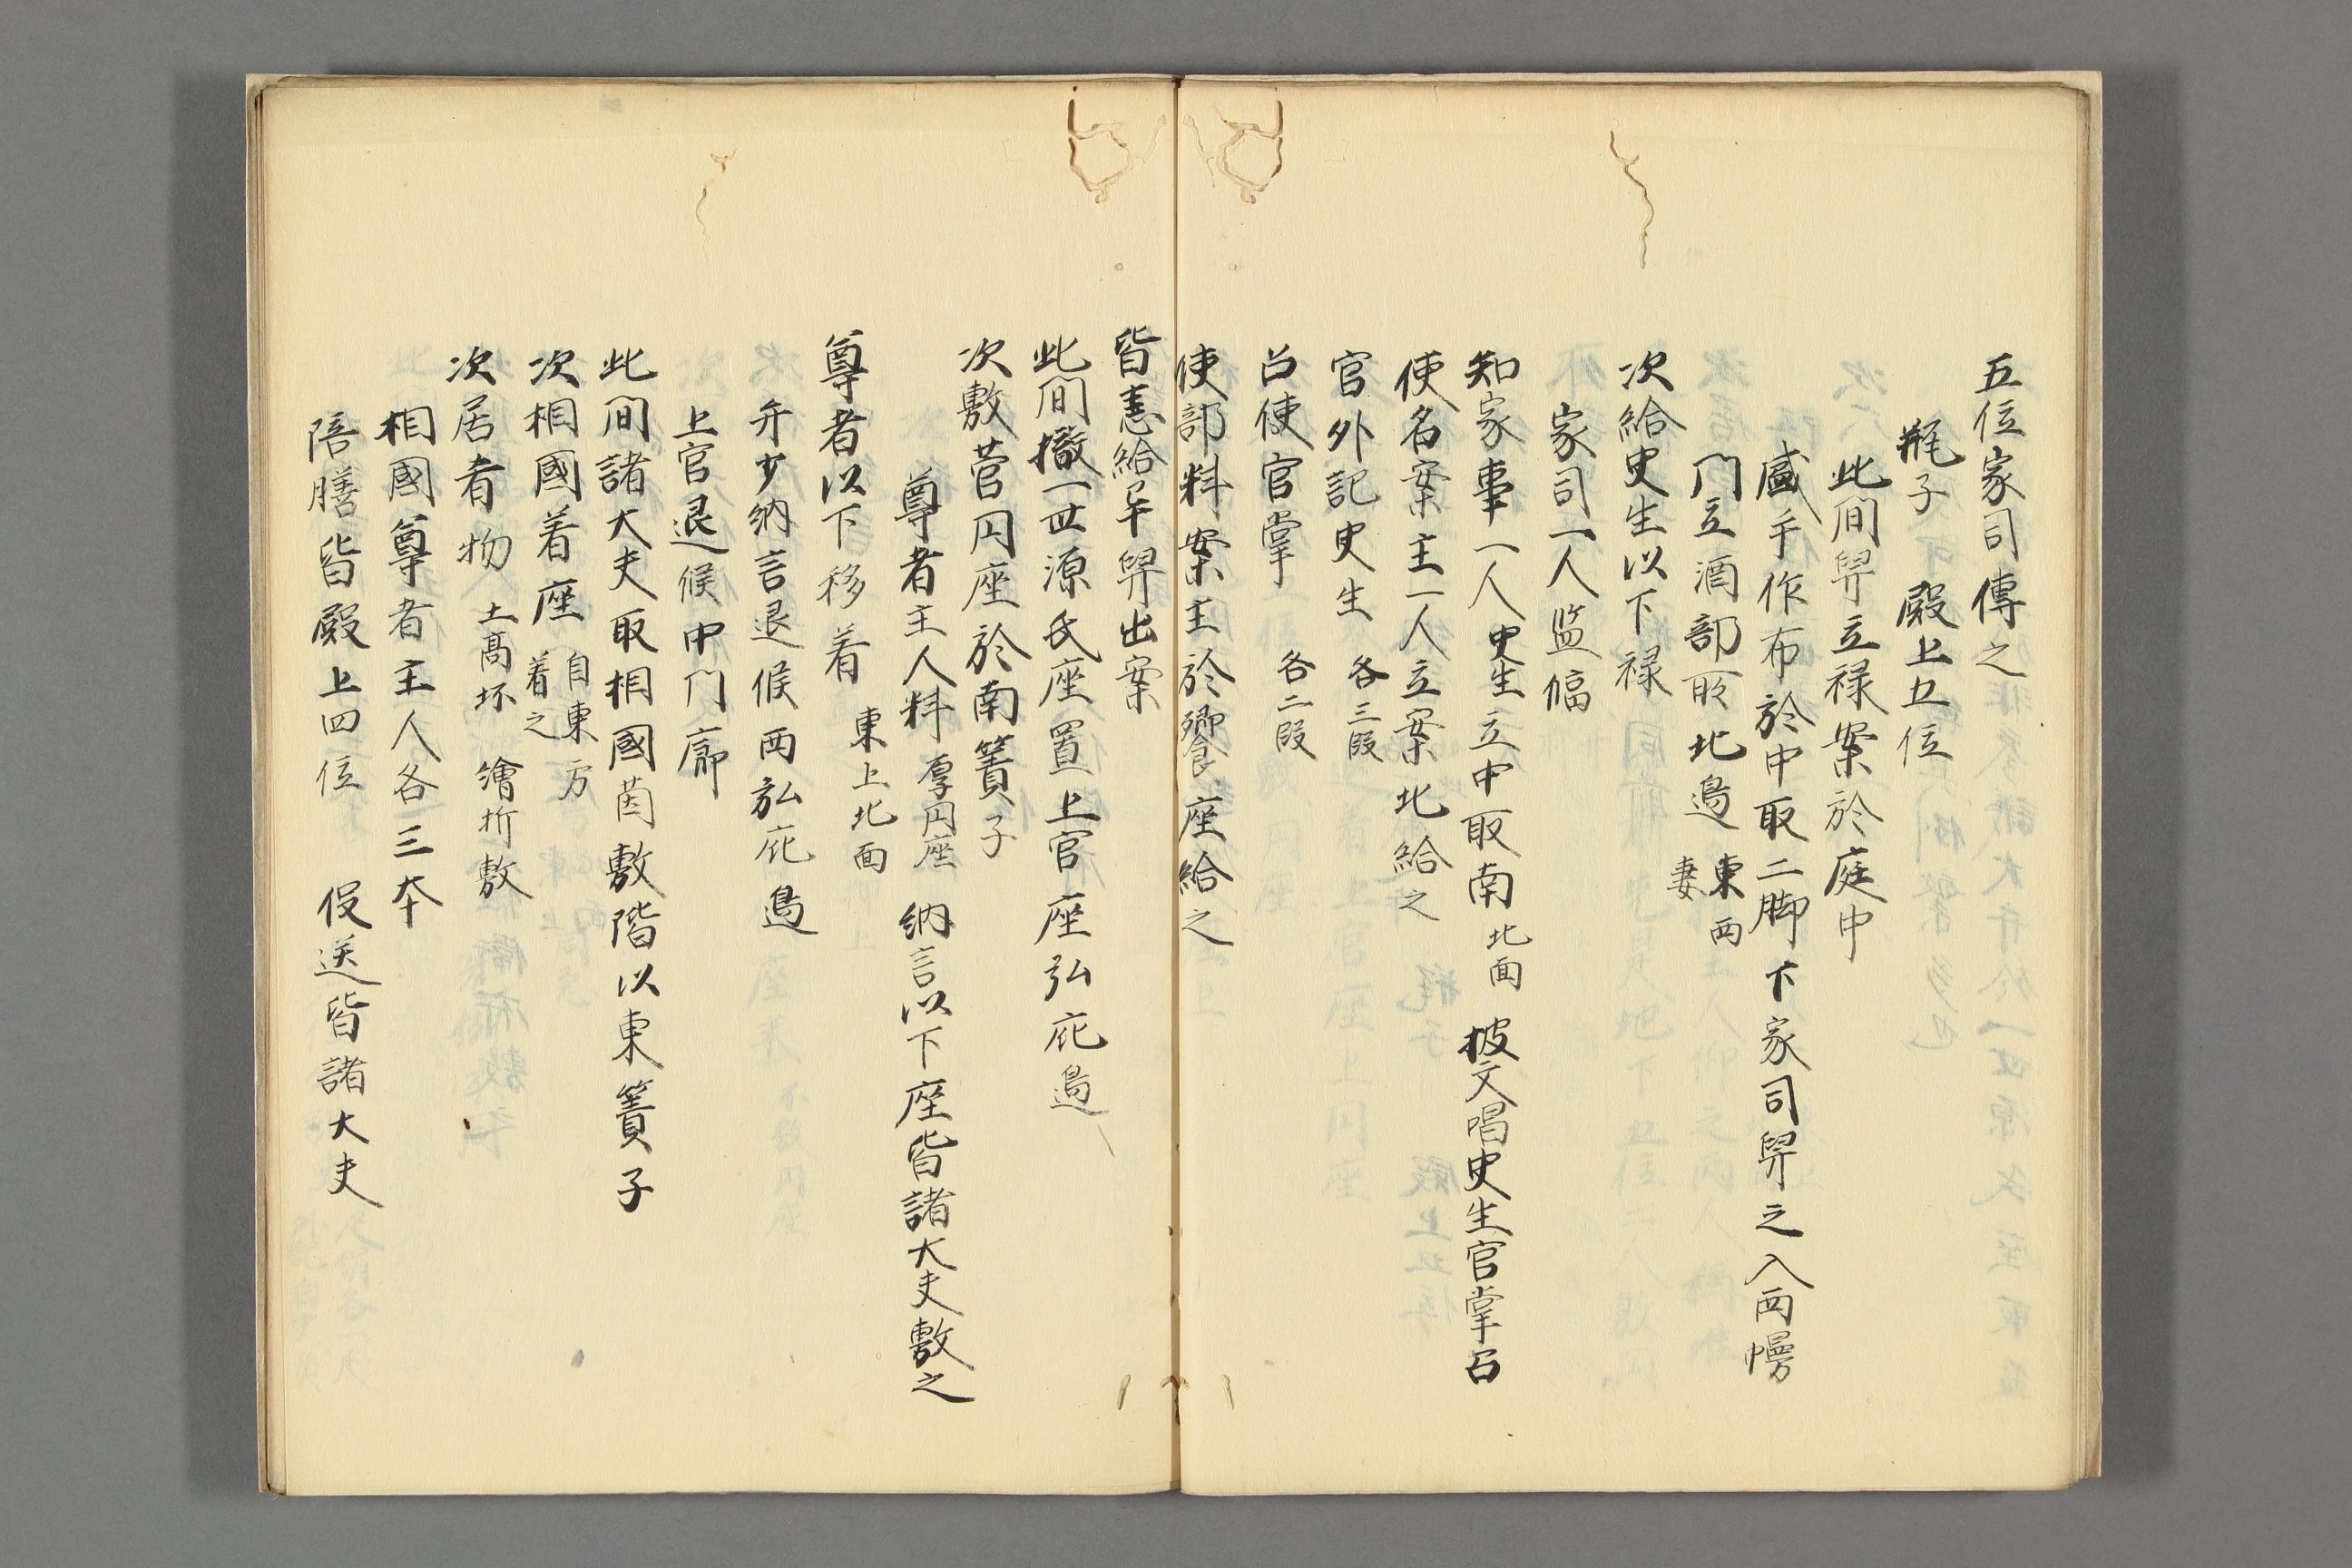 五位家司傳之
瓶子 殿上五位
此間舁立禄案於庭中
盛手作布於中取二脚下家司舁之入西幔
門立酒部所北邊 東西妻
次給史生以下禄
家司一人監臨
知家事一人史生立中取南 北面 披文唱史生官掌召
使名案主一人立案北給之
官外記史生 各三段
召使官掌 各二段
使部料案主於饗座給之
皆悉給畢舁出案
此間撤一世源氏座置上官座弘庇邊
次敷菅円座於南簀子
尊者主人料 厚円座 納言以下座皆諸大夫敷之
尊者以下移着 東上北面
弁少納言退候西弘庇邊
上官退候中門廊
此間諸大夫取相國茵敷階以東簀子
次相國着座 自東方着之
次居肴物 土高坏 繪折敷
相國尊者主人各三本
陪膳皆殿上四位 役送皆諸大夫